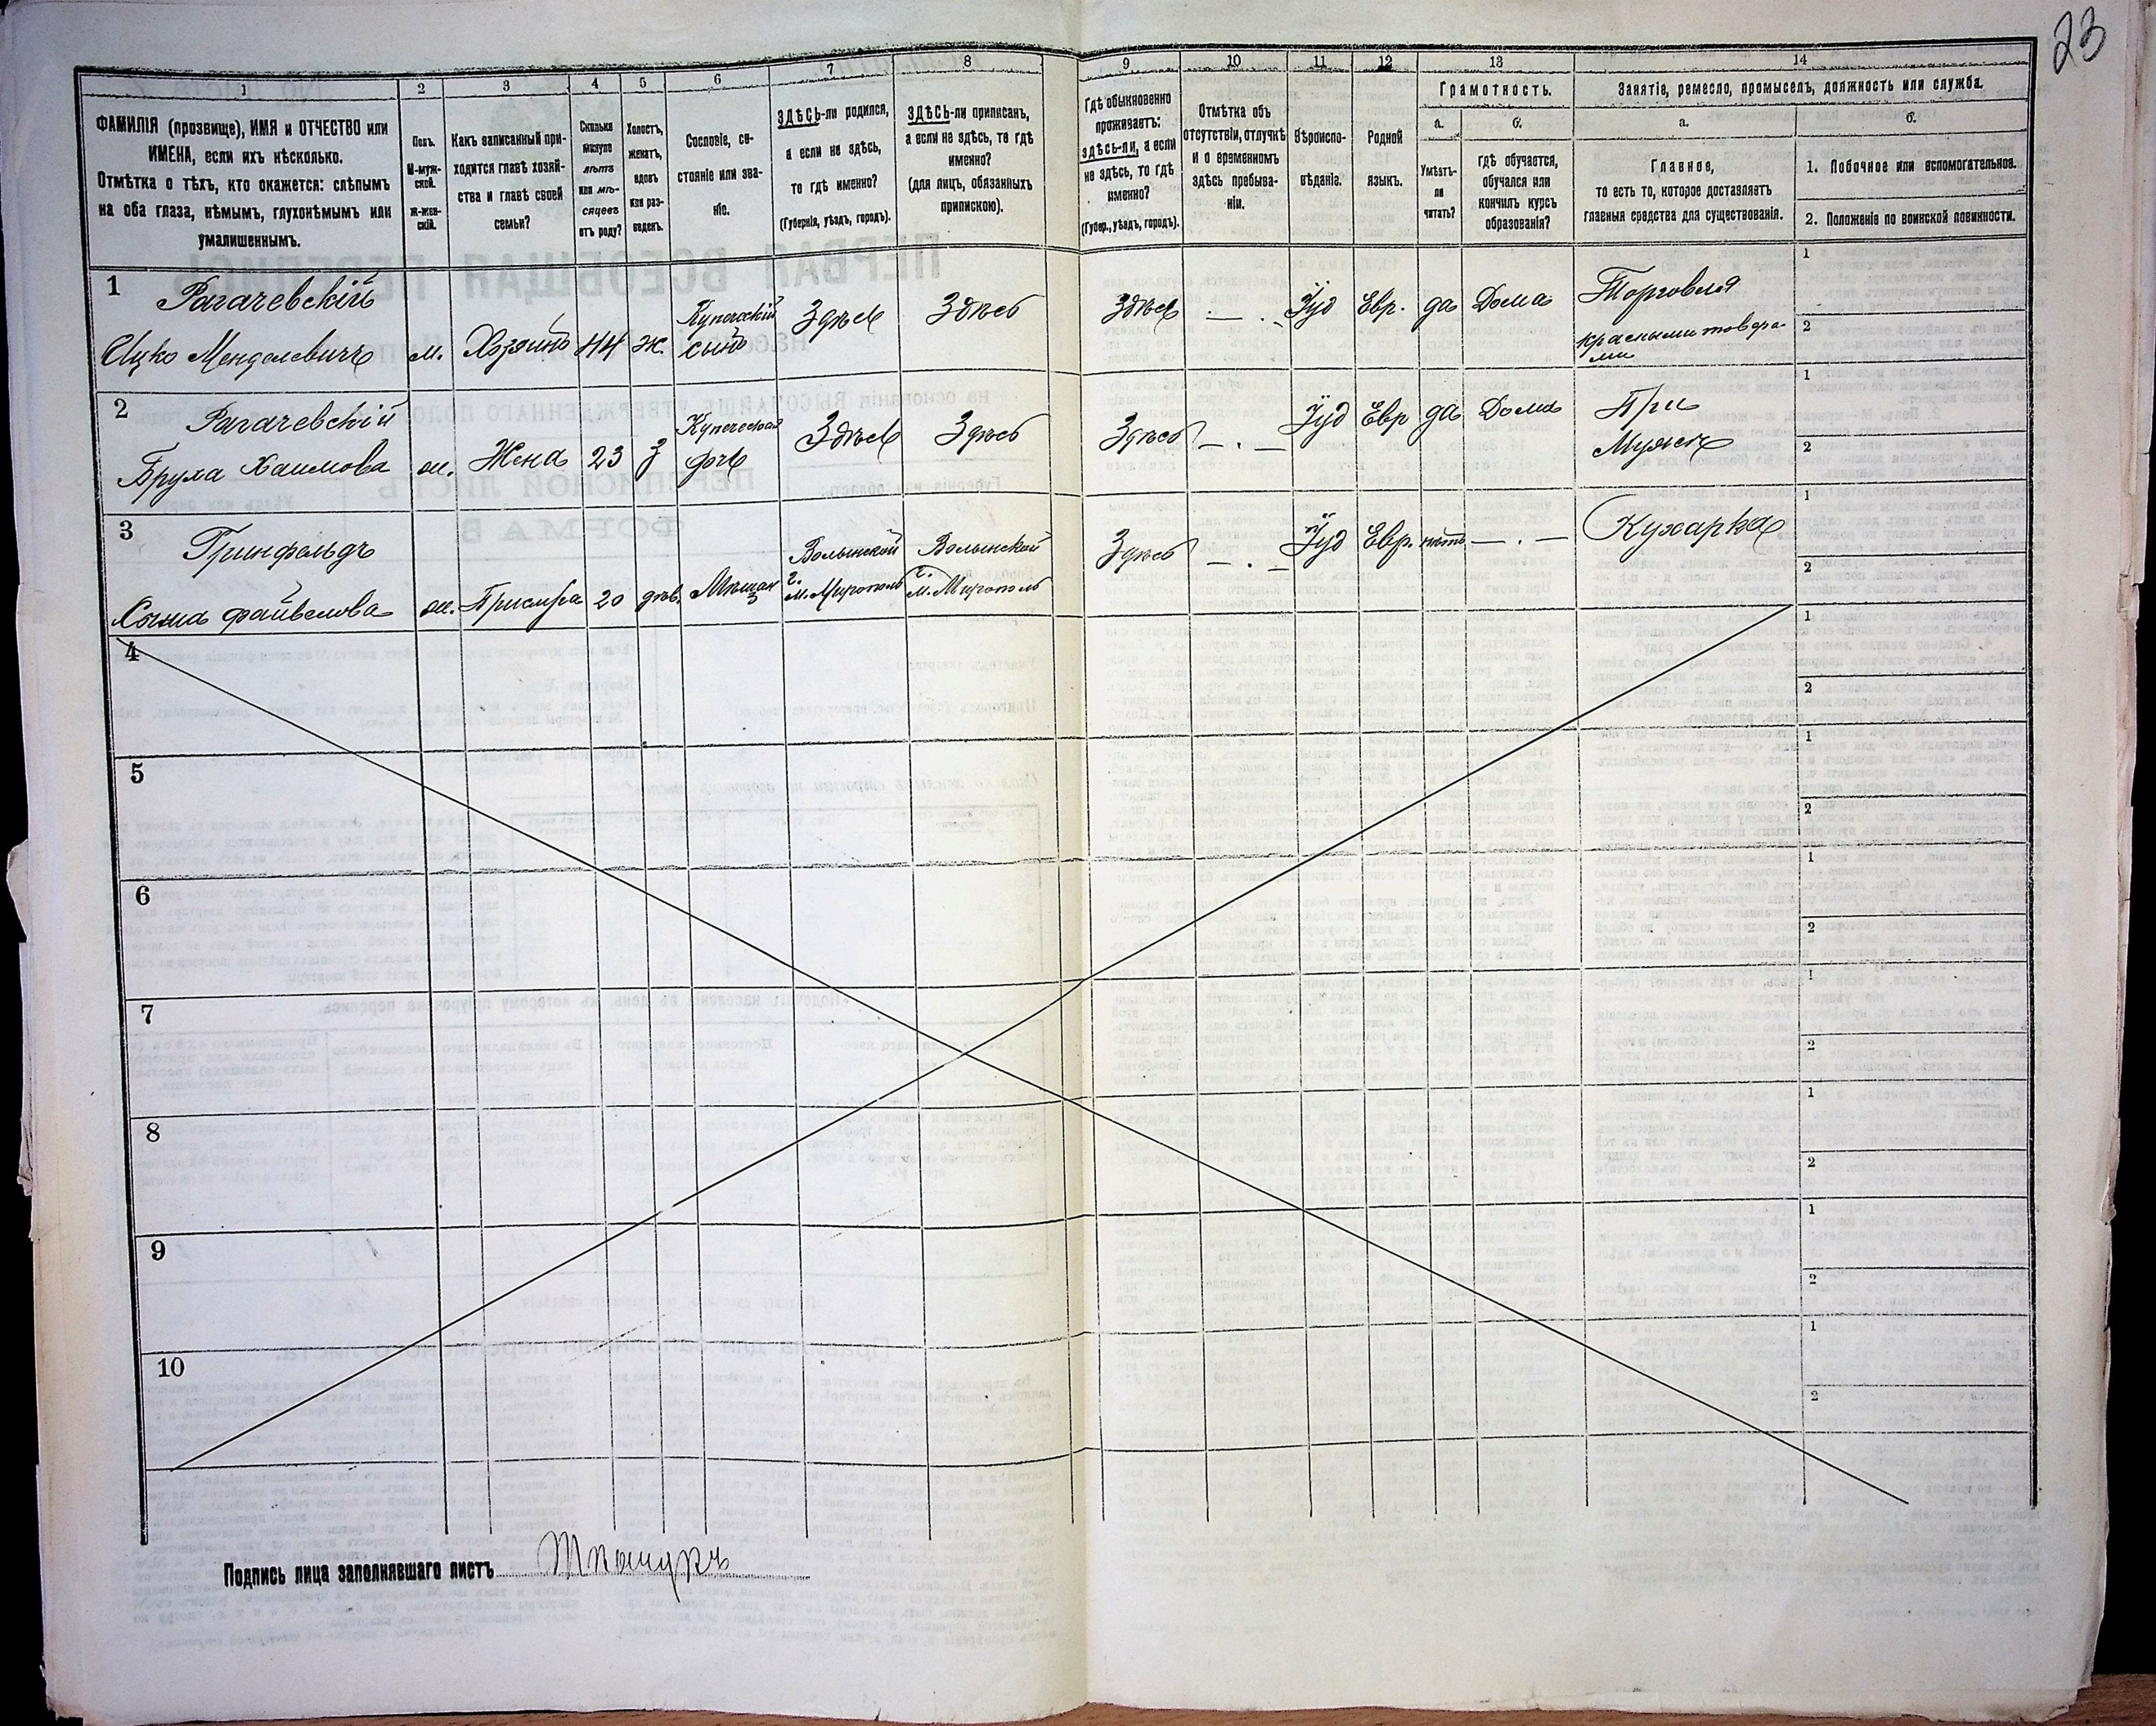 23
1
2
3
4
5
6
7
8
9
10
11
12
13
14
ФАМИЛІЯ (прозвище), ИМЯ и ОТЧЕСТВО или
ИМЕНА, если ихъ нѣсколько.
Отмѣтка о тѣхъ, кто окажется: слѣпымъ
на оба глаза, нѣмымъ, глухонѣмымъ или
умалишеннымъ.
Полъ.
М-муж-
ской.
Ж-жен-
скій.
Какъ записанный при-
ходится главѣ хозяй-
ства и главѣ своей
семьи?
Сколько
минуло
лѣтъ
или мѣ-
сяцевъ
отъ роду?
Холостъ,
женатъ,
вдовъ
или раз-
веденъ.
Сословіе, со-
стояніе или зва-
ніе.
ЗДѢСЬ-ли родился,
а если не здѣсь,
то гдѣ именно?
(Губернія, уѣздъ, городъ).
ЗДѢСЬ-ли приписанъ,
а если не здѣсь, то гдѣ
именно?
(для лицъ, обязанныхъ
припискою).
Гдѣ обыкновенно
проживаетъ:
здѣсь-ли, а если
не здѣсь, то гдѣ
именно?
(Губер., уѣздъ, городъ).
Отмѣтка объ
отсутствіи, отлучкѣ
и о временномъ
здѣсь пребыва-
ніи.
Вѣроиспо-
вѣданіе.
Родной
языкъ.
Грамотность.
а.
Умѣетъ-
ли
читать?
б.
гдѣ обучается,
обучался или
кончилъ курсъ
образованія?
Занятіе, ремесло, промыселъ, должность или служба.
а.
Главное,
то есть то, которое доставляетъ
главныя средства для существованія.
б.
1. Побочное или вспомогательное.
2. Положеніе по воинской повинности.
1
Рагачевскій
Ицко Менделевичъ
м.
Хозяинъ
44
ж.
Купеческій
сынъ
Здѣсь
Здѣсь
Здѣсь
— . —
Іуд
Евр.
да
Дома
Торговля
красными товара-
ми
1
2
2
Рагачевскій
Бруха Хаимова
ж.
Жена
23
з
Купеческая
дочь
Здѣсь
Здѣсь
Здѣсь
— . —
Іуд
Евр
да
Дома
При
Мужѣ
1
2
3
Гринфельдъ
Файвелова
ж.
Прислуга
20
дѣв.
Мѣщан
Волынской
г.
м. Мирополь
Волынской
г.
м. Мирополь
Здѣсь
— . —
Іуд
Евр.
нѣтъ
— . —
Кухарка
1
2
4
1
2
5
1
2
6
1
2
7
1
2
8
1
2
9
1
2
10
1
2
Подпись лица заполнявшаго листъ